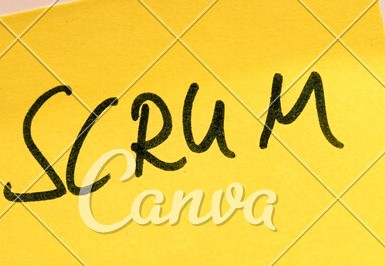 SCRUM
Canva